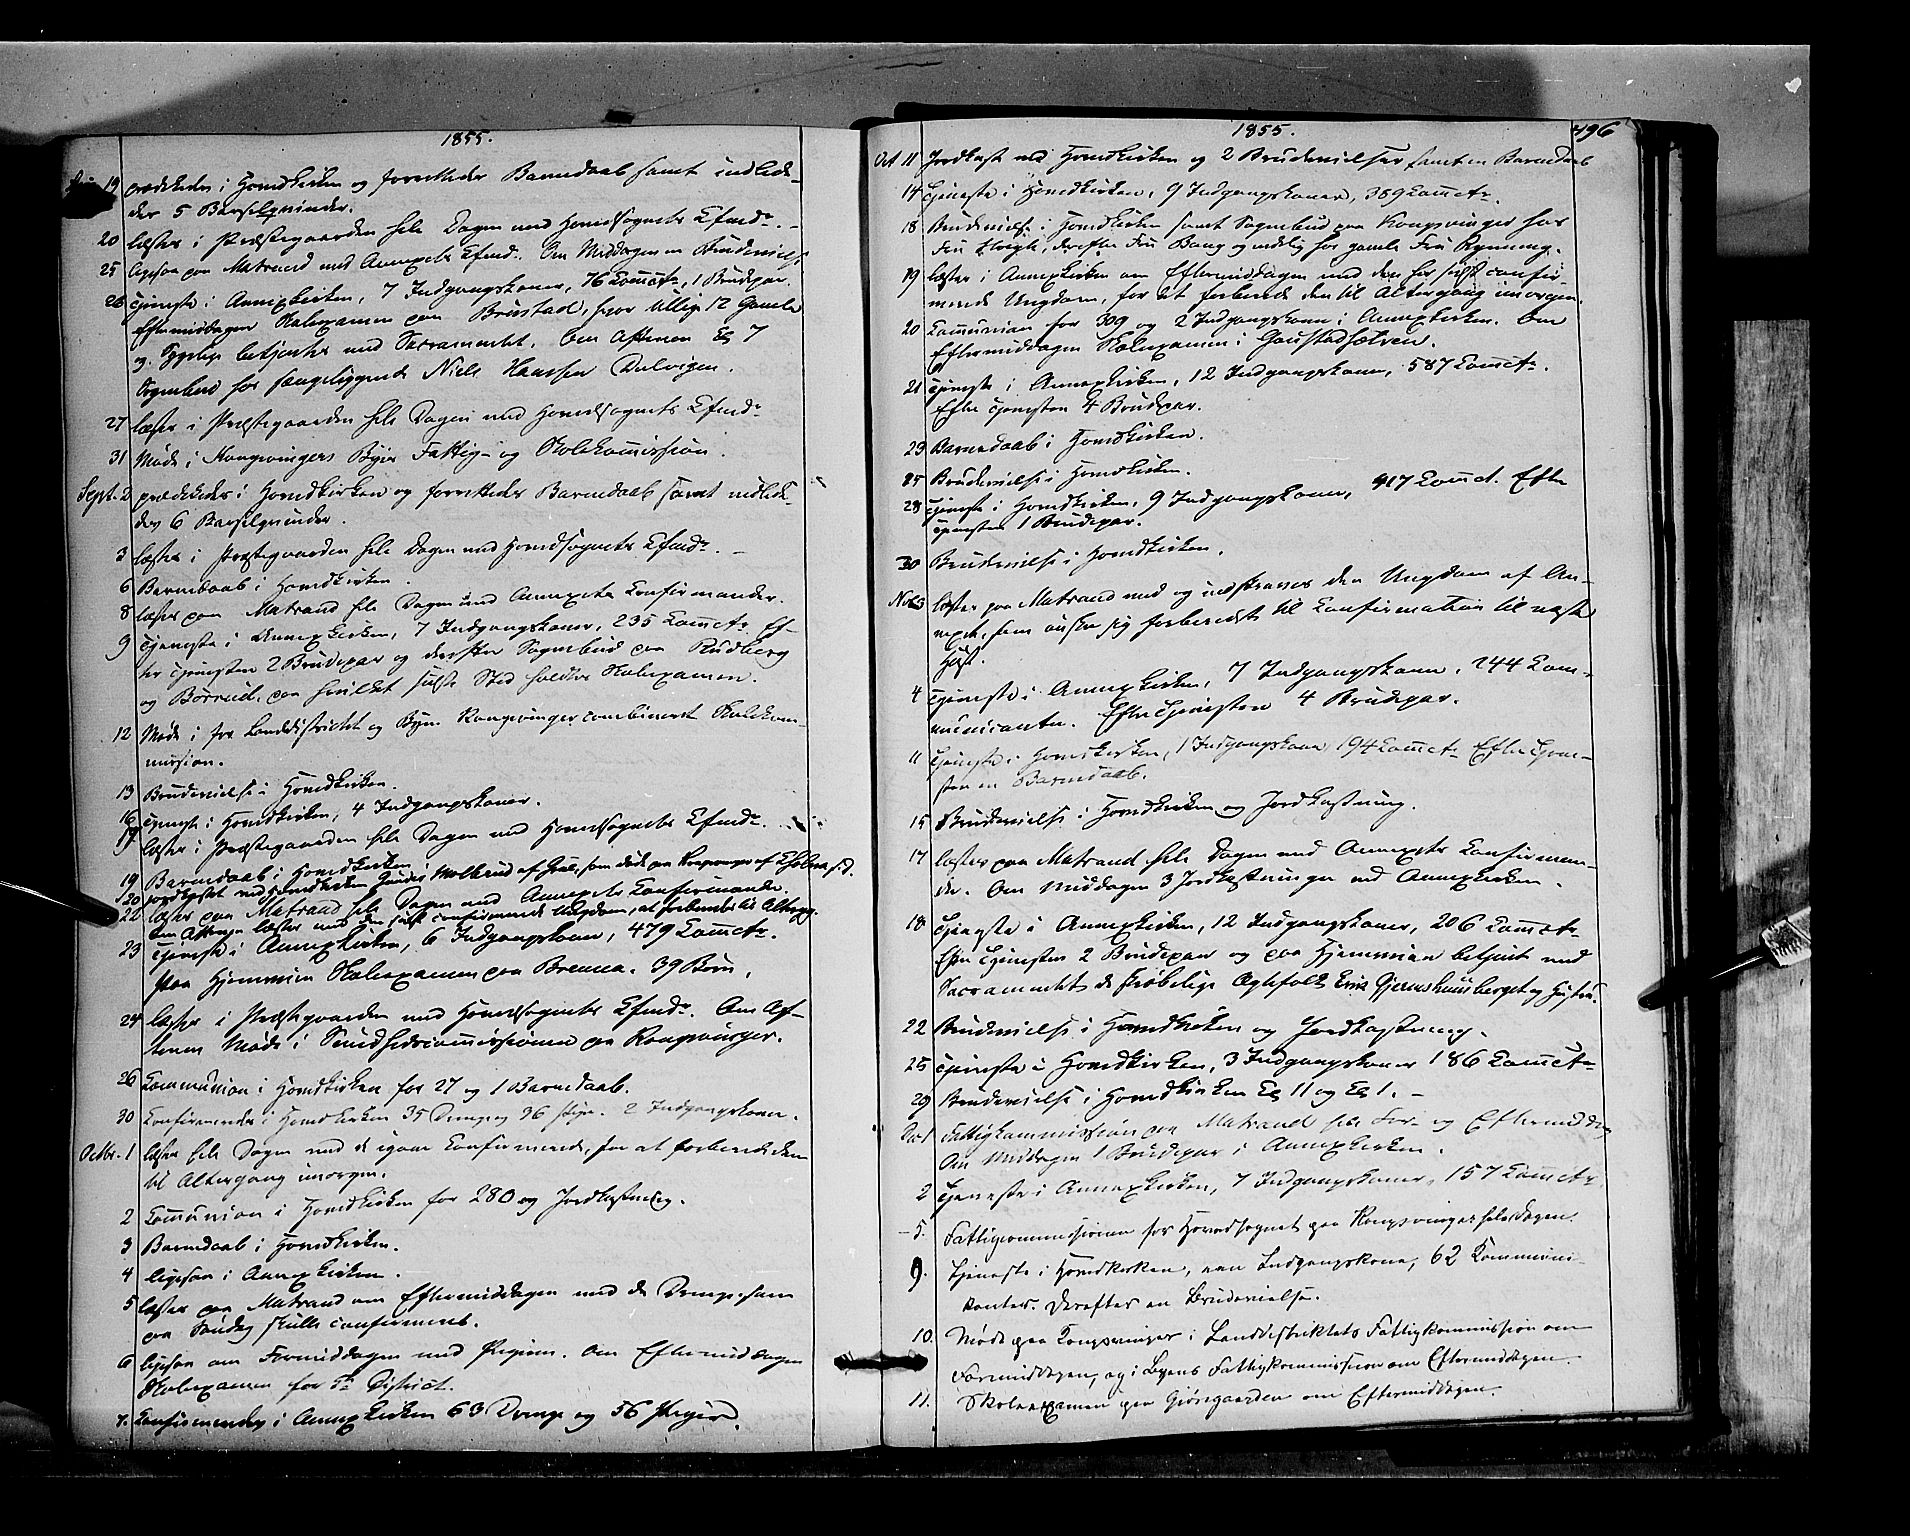 1855.
19 prædikedes i Hovedkirken og forrettedes Barnedaab samt indlede-
des 5 Barselqvinder.
20 læste i Præstegaarden hele Dagen med Hovedsognets Cfmdr. –
25 ligesaa paa Matrand med Annexets Cfmdr. Om Middagen en Brudevielse
26 Tjeneste i Annexkirken, 7 Indgangskoner, 76 Comctr, 1 Brudepar.
Eftermiddagen Skolexamen paa Brustad, hvor tillige 12 Gamle
og Sygelige betjentes med Sacramentet. Om Aftenen Kl 7
Sognebud for sengeliggende Niels Hanssen Dulvigen.
27 læste i Præstegaarden hele Dagen med Hovedsognets Cfmdr
31 Møde i Kongsvingers Byes Fattig- og Skolekomission.
Sept. 2 prædikedes i Hovedkirken og forrettedes Barnedaab samt indlede-
des 6 Barselqvinder.
3 læste i Præstegaarden hele Dagen med Hovedsognets Cfmdr. –
6 Barnedaab i Hovedkirken.
8 læste paa Matrand hele Dagen med Annexets Confirmander.
9 Tjeneste i Annexkirken, 7 Indgangskoner, 235 Comctr. Ef-
ter Tjenesten 2 Brudepar og derefter Sognebud paa Rudberg
og Børrud, paa hvilket sidste Sted holdtes Skolexamen.
12 Møde i for Landdistrictet og Byen Kongsvinger combineret Skolekom-
mission.
13 Brudevielse i Hovedkirken.
16 Tjeneste i Hovedkirken, 4 Indgangskoner.
17 læste i Præstegaarden hele Dagen med Hovedsognets Cfmdr.
19 Barnedaab i Hovedkirken
20 Jordkastet ved Hovedkirken Gunder Molkerud af Grue, som døde paa Kongsvinger af Cholera
22 læste paa Matrand hele Dagen med Annexets Confirmander.
Om Aftenen læste med den sidst confirmerede Ungdom, at forberede til Altergg.
23 Tjeneste i Annexkirken, 6 Indgangskoner, 479 Comctr.
Paa Hjemveien Skolexamen paa Brenna. 39 Børn.
24 læste i Præstegaarden med Hovedsognets Cfmdr. Om Af-
tenen Møde i Sundhedscomissionen paa Kongsvinger.
26 Communion i Hovedkirken for 27 og 1 Barnedaab.
30 Confirmeredes i Hovedkirken 35 Drenge og 36 Piger. 2 Indgangskoner.
Octbr. 1 læste hele Dagen med de igaar Confirmerede, for at forberede dem
til Altergang imorgen.
2 Communion i Hovedkirken for 280 og Jordkastelse.
3 Barnedaab i Hovedkirken.
4 ligesaa i Annexkirken.
5 læste paa Matrand om Eftermiddagen med de Drenge, som
paa Søndag skulle confirmeres.
6 ligesaa om Formiddagen med Pigerne. Om Eftermiddagen
Skolexamen for District.
7. Confirmeredes i Annexkirken 63 Drenge og 56 Piger.
1855.
496
Oct 11 Jordkast. ved Hovedkirken og 2 Brudevielser samt en Barnedaab
14 Tjeneste i Hovedkirken, 9 Indgangskoner, 389 Comctr.
18 Brudevielse i Hovedkirken samt Sognebud paa Kongsvinger hos
Fru derefter Fru Bang og endelig hos gamle Fru Rynning.
19 læste i Annexkirken om Eftermiddagen med den her sidst confir-
merede Ungdom, for at forberede den til Altergang imorgen.
20 Communion for 309 og 2 Indgangskoner i Annexkirken. Om
Eftermiddagen Skolexamen i
21 Tjeneste i Annexkirken, 12 Indgangskoner, 587 Comctr.
Efter Tjenesten 4 Brudepar.
23 Barnedaab i Hovedkirken.
25 Brudevielse i Hovedkirken.
28 Tjeneste i Hovedkirken, 9 Indgangskoner, 417 Comct. Efter
Tjenesten 1 Brudepar.
30 Brudevielse i Hovedkirken.
Nov 3 læste paa Matrand med og indskreves den Ungdom af An-
nexet, som ønske sig forberedt til Confirmation til næste
Høst.
4 Tjeneste i Annexkirken, 7 Indgangskoner, 244 Com-
municanter. Efter Tjenesten 4 Brudepar.
11 Tjeneste i Hovedkirken, 1 Indgangskone, 194 Comctr Efter Tjene-
sten en Barnedaab.
15 Brudevielse i Hovedkirken og Jordkastning.
17 læste paa Matrand hele Dagen med Annexets Confirman-
der. Om Middagen 3 Jordkastninger ved Annexkirken.
18 Tjeneste i Annexkirken, 12 Indgangskoner, 206 Comctr
Efter Tjenesten 2 Brudepar og paa Hjemveien betjent med
Sacramentet de skrøbelige Ægtefolk Erik Gjermshuusberget og Hustru.
22 Brudevielse i Hovedkirken og Jordkastning.
25 Tjeneste i Hovedkirken, 3 Indgangskoner 186 Comctr
29 Brudevielse i Hovedkirken Kl 11 og Kl 1. –
Dec 1 Fattigkommission paa Matrand hele For- og Eftermiddag
Om Middagen 1 Brudepar i Annexkirken.
2 Tjeneste i Annexkirken, 7 Indgangskoner, 157 Comctr
5. Fattigcommissionen for Hovedsognet paa Kongsvinger hele Dagen.
9. Tjeneste i Hovedkirken, een Indgangskone, 62 Kommuni-
kanter. Derefter en Brudevielse.
10. Møde paa Kongsvinger i Landdistriktets Fattigkommission om
Formiddagen, og i Byens Fattigkommission om Eftermiddagen.
11. Skoleexamen paa Gjøsegaarden om Eftermiddagen.